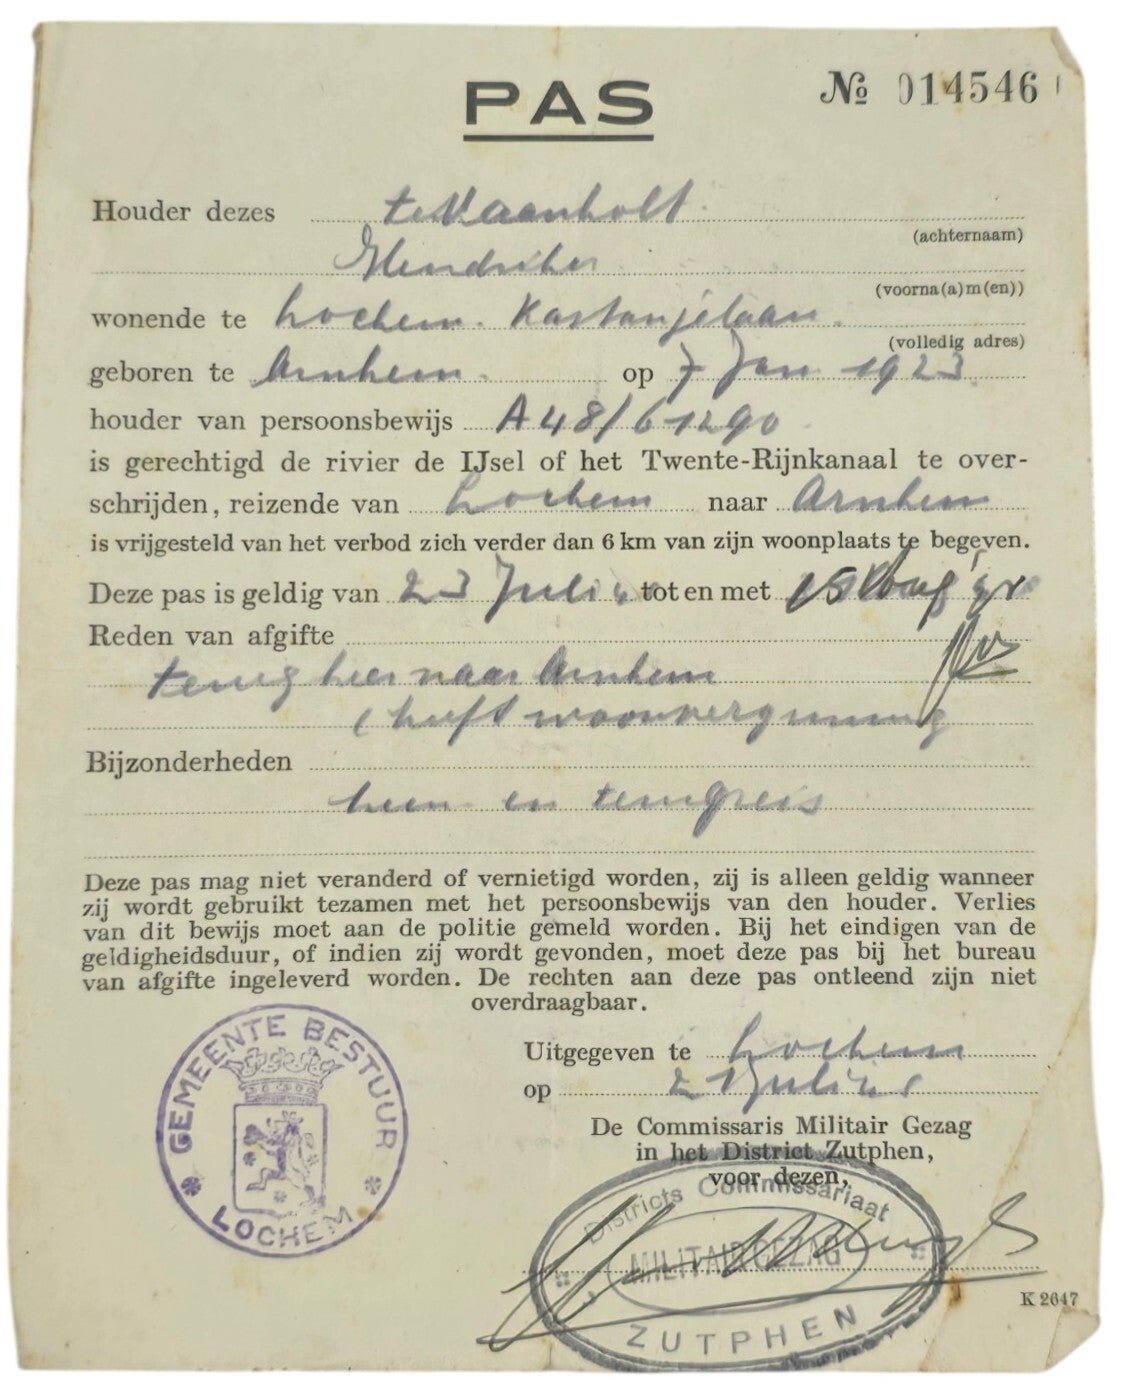 PAS
№ 014546
Houder dezes
(achternaam)
(voorna(a)m(en))
wonende te Lochem. Kastanjelaan.
(volledig adres)
geboren te Arnhem. op 7 Jan 1923.
houder van persoonsbewijs A 48/61290
is gerechtigd de rivier de IJsel of het Twente-Rijnkanaal te over-
schrijden, reizende van Lochem naar Arnhem
is vrijgesteld van het verbod zich verder dan 6 km van zijn woonplaats te begeven.
Deze pas is geldig van 23 Juli tot en met 15
Reden van afgifte
terug keer naar Arnhem
( heeft woonvergunning
Bijzonderheden
heen- en terugreis
Deze pas mag niet veranderd of vernietigd worden, zij is alleen geldig wanneer
zij wordt gebruikt tezamen met het persoonsbewijs van den houder. Verlies
van dit bewijs moet aan de politie gemeld worden. Bij het eindigen van de
geldigheidsduur, of indien zij wordt gevonden, moet deze pas bij het bureau
van afgifte ingeleverd worden. De rechten aan deze pas ontleend zijn niet
overdraagbaar.
GEMEENTE BESTUUR
LOCHEM
Uitgegeven te Lochem
op 21 Juli
De Commissaris Militair Gezag
in het District Zutphen,
voor dezen,
Districts Commissariaat
MILITAIR GEZAG
ZUTPHEN
K 2647